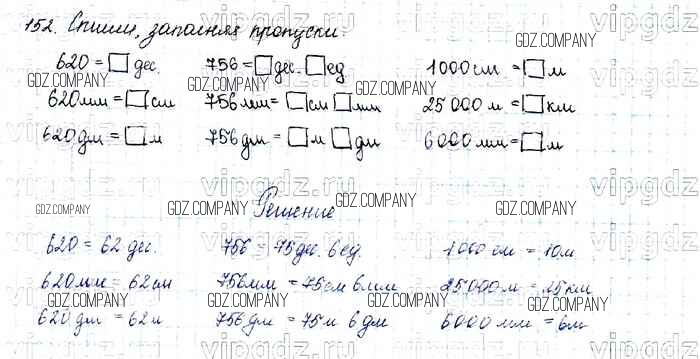 152. Спиши, заполняя пропуски.
620 = □ дес. 756 = □ дес. □ ед 1000 см = □ м
620 мм = □ см 756 мм = □ см □ мм 25 000 м = □ км
620 дм = □ м 756 дм = □ м □ дм 6000 мм = □ м
Решение
620 = 62 дес. 756 = 75 дес. 6 ед. 1000 см = 10 м
620 мм = 62 см 756 мм = 75 см 6 мм 25000 м = 25 км
620 дм = 62 м 756 дм = 75 м 6 дм 6000 мм = 6 м
GDZ.COMPANY
vipgdz.ru